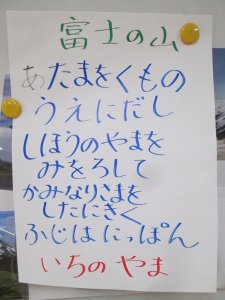 富士の山
あたまをくもの
うえにだし
しほうのやまを
みをろして
かみなりさまを
したにきく
ふじはにっぽん
いちのやま